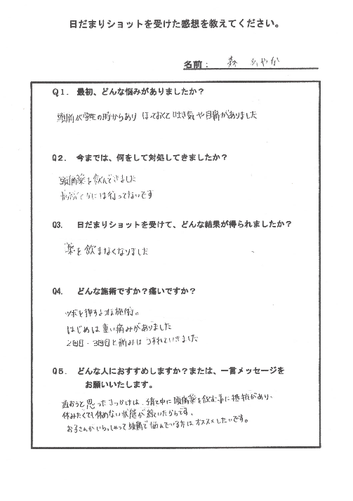 日だまりショットを受けた感想を教えてください。
名前：
Q1． 最初、どんな悩みがありましたか？
頭痛が学生の時からあり ほっておくと吐き気や目痛がありました
Q2． 今までは、何をして対処してきましたか？
頭痛薬を飲んできました
には行ってないです
Q3． 日だまりショットを受けて、どんな結果が得られましたか？
薬を飲まなくなりました
Q4． どんな施術ですか？痛いですか？
ツボを押すような施術。
はじめは重い痛みがありました
2回目・3回目と痛みはうすれていきました
Q5． どんな人におすすめしますか？または、一言メッセージを
お願いいたします。
治そうと思ったきっかけは、妊娠中に頭痛薬を飲む事に抵抗があり、
休みたくても休めない状態が続いたからです。
お子さんがいらっしゃって頭痛で悩んでいる方にはオススメしたいです。